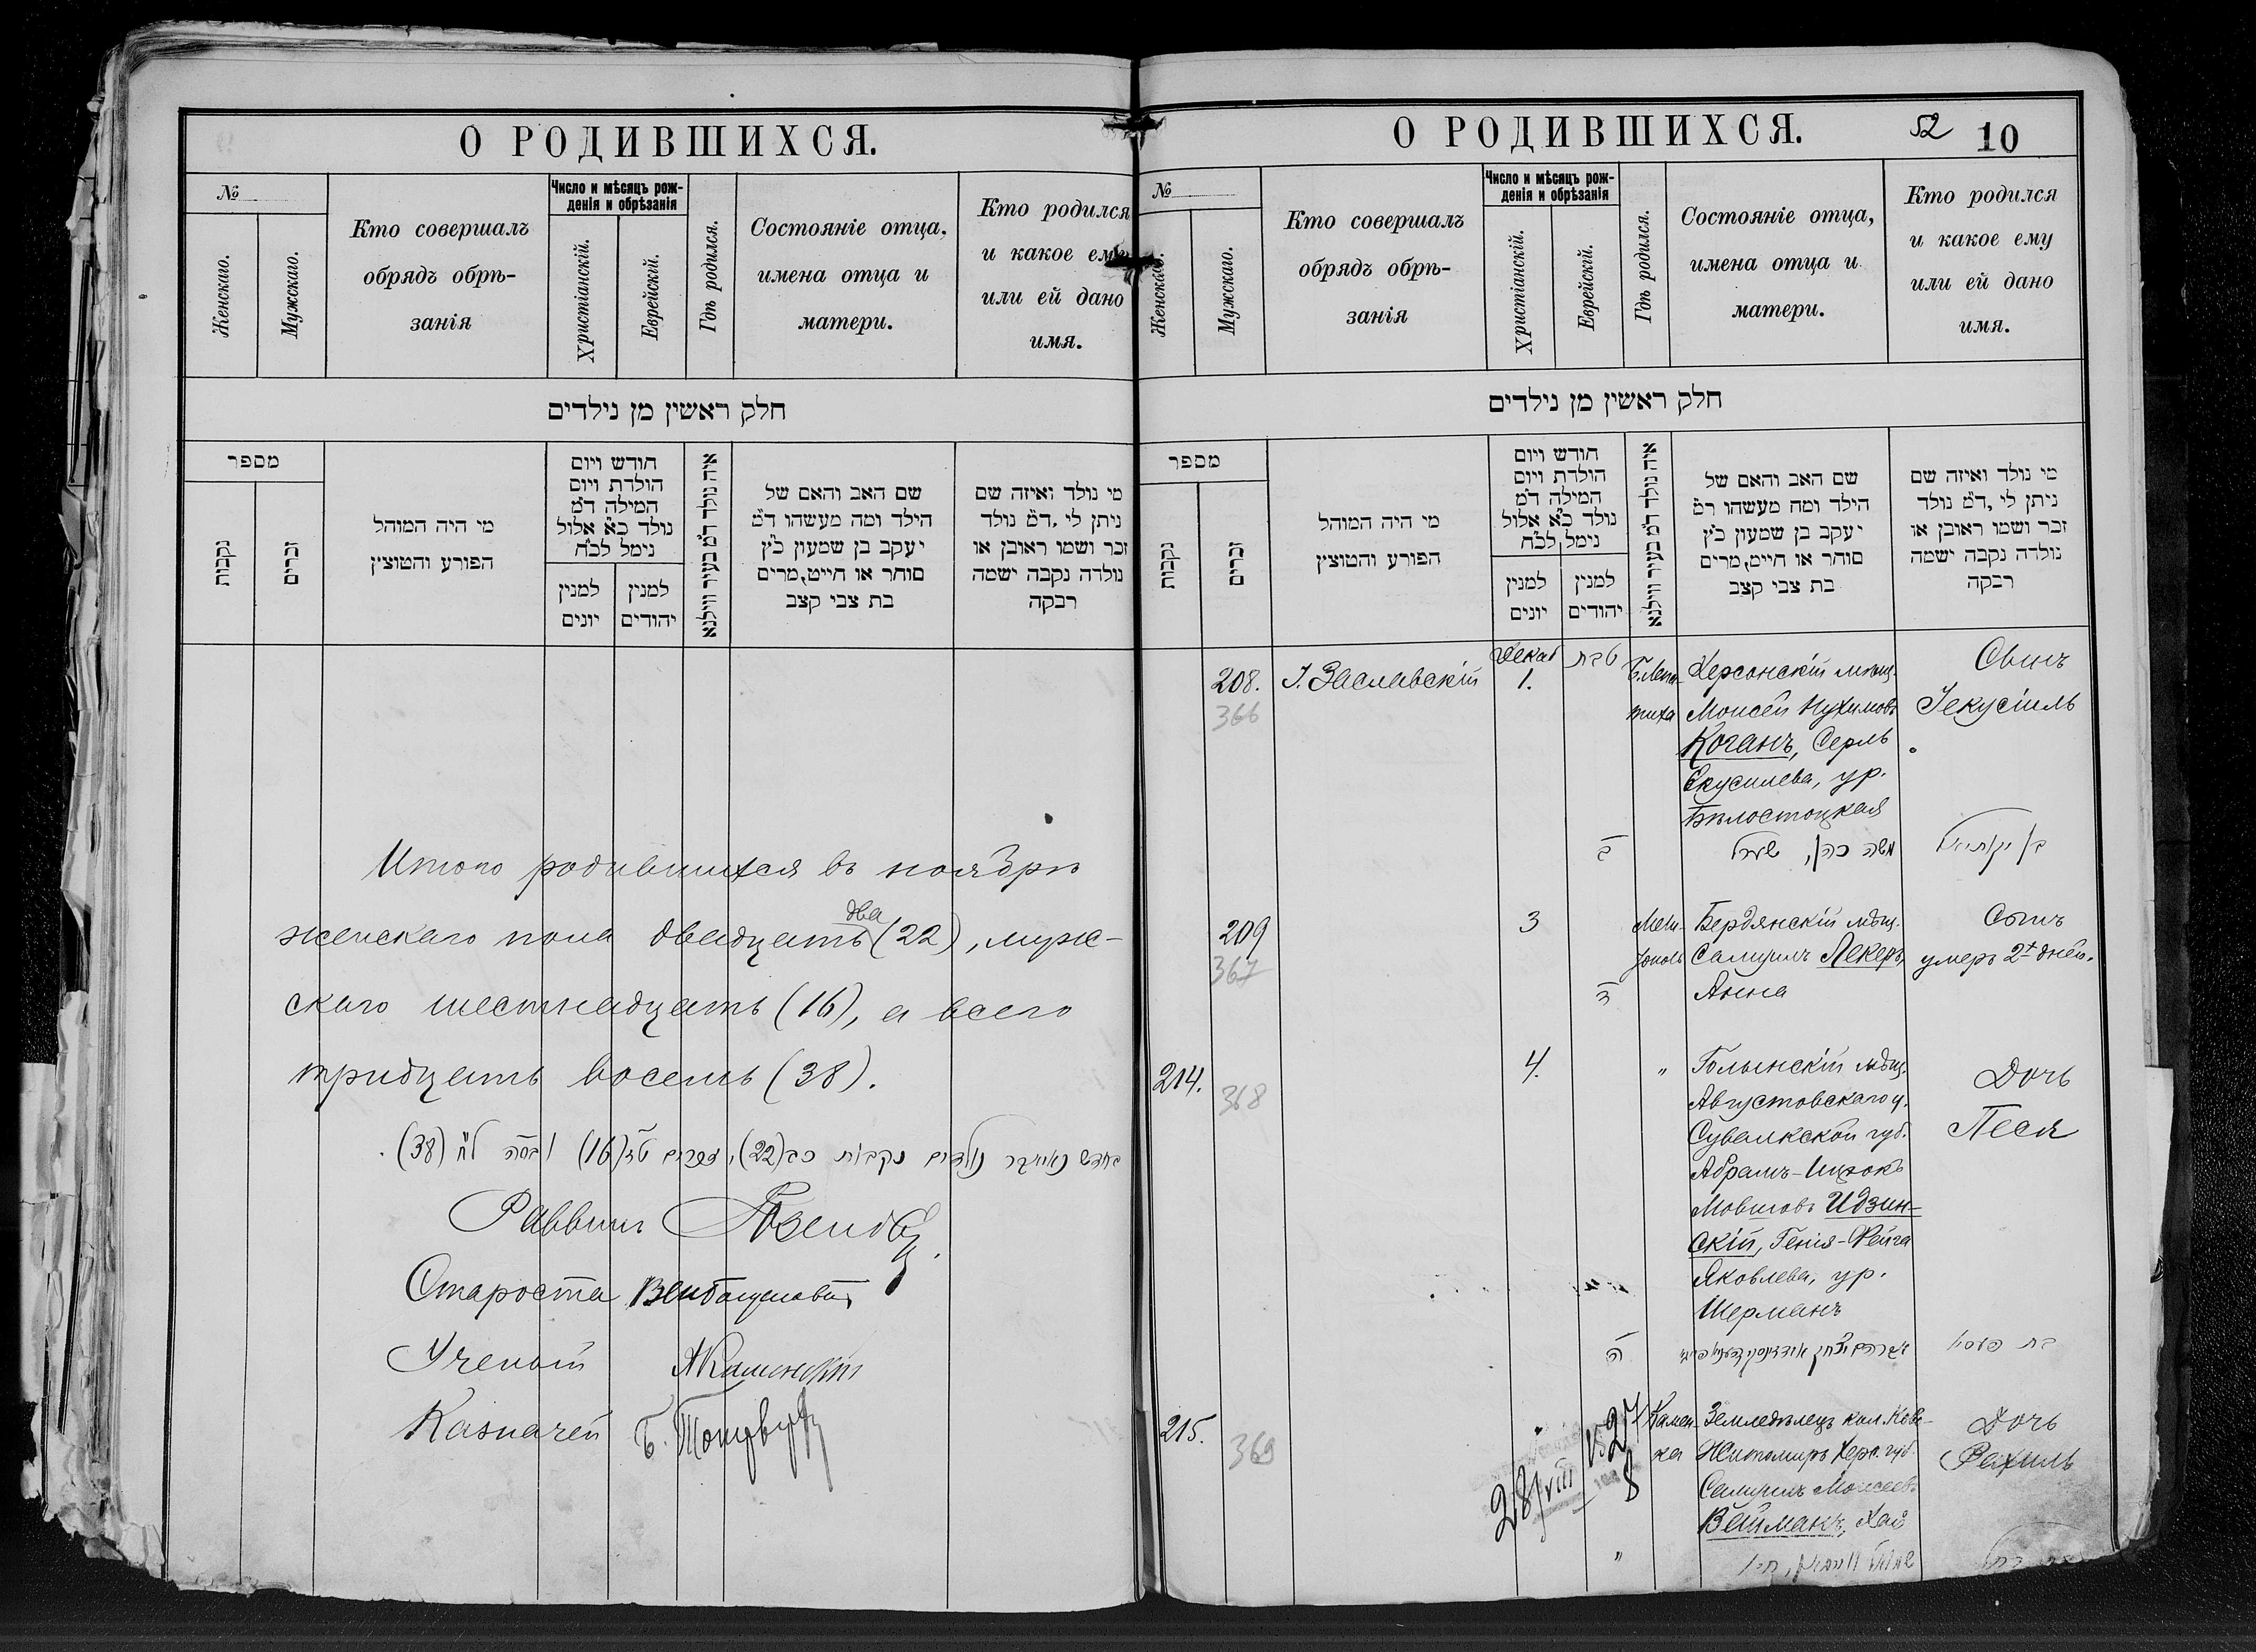 О РОДИВШИХСЯ.
№
Женскаго.
Мужскаго.
Кто совершалъ
обрядъ обрѣ-
занія
Число и мѣсяцъ рож-
денія и обрѣзанія
Христіанскій.
Еврейскій.
Гдѣ родился.
Состояніе отца,
имена отца и
матери.
Кто родился
и какое ему
или ей дано
имя.
חלק ראשין מן נילדים
מספר
נקבות
זכרים
מי היה המוהל
הפורע והטוצץ
חודש ויום
הולדת ויום
המילה ד״מ
נולד כ״א אלול
נימל לכ״ח
למנין
יונים
למנין
יהודים
איה נולד ד״מ בעיר ווילנא
שם האב והאם של
הילד ומה מעשהו ד״מ
יעקב בן שמעון כ״ץ
סוחר או חייט, מרים
בת צבי קצב
מי נולד ואיזה שם
ניתן לי, ד״מ נולד
זכר ושמו ראובן או
נולדה נקבה ישמה
רבקה
Итого родившихся въ ноябрѣ
два
женскаго пола двадцать (22), муж-
скаго шестнадцать (16), а всего
тридцать восемь (38).
בחדש נאוויבר נולדים נקבות כב (22), זכרים טז (16) ובסה לח (38).
Раввинъ
Староста
Ученый
Казначей Б.
О РОДИВШИХСЯ.
52 10
№
Женскаго.
Мужскаго.
Кто совершалъ
обрядъ обрѣ-
занія
Число и мѣсяцъ рож-
денія и обрѣзанія
Христіанскій.
Еврейскій.
Гдѣ родился.
Состояніе отца,
имена отца и
матери.
Кто родился
и какое ему
или ей дано
имя.
חלק ראשין מן נילדים
מספר
נקבות
זכרים
מי היה המוהל
הפורע והטוצץ
חודש ויום
הולדת ויום
המילה ד״מ
נולד כ״א אלול
נימל לכ״ח
למנין
יונים
למנין
יהודים
איה נולד ד״מ בעיר ווילנא
שם האב והאם של
הילד ומה מעשהו ד״מ
יעקב בן שמעון כ״ץ
סוחר או חייט, מרים
בת צבי קצב
מי נולד ואיזה שם
ניתן לי, ד״מ נולד
זכר ושמו ראובן או
נולדה נקבה ישמה
רבקה
208.
366
І. Заславскій
Декаб
1.
טבת
Б. Лепа-
тиха
Херсонскій мѣщ.
Моисей Нухимовъ
Коганъ, Серль
Екусилева, ур.
Бѣлостоцкая
Сынъ
Іекусіиль
ב
משה כהן,
בן יקותיאל
209
367
3
Мели-
Бердянскій мѣщ.
Самуилъ Лекеръ,
Анна
Сынъ
умеръ 2х дней.
ד
214.
368
4.
"
Голынскій мѣщ.
Августовскаго у.
Сувалкской губ.
Абрамъ-Ицхокъ
Мовшовъ Идзин-
скій, Геня-Фейга
Яковлева, ур.
Шерманъ
Дочь
Песя
ה
אברהם יצחק
בת פעסי
215.
369
28/VIII
27
8
Камен-
ка
Земледѣлецъ кол. Нов.
Житомиръ Херс. губ.
Самуилъ Моисеев.
Вейманъ, Хая
Дочь
Рахиль
"